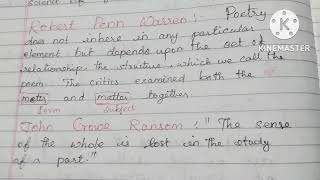 Robert Penn Warren :- Poetry
does not inhere in any particular
element but depends upon the set of
relationships the struture, which we call the
poem. The critics examined both the
metts and matter together.
form subject
John Crowe Ransom : "The sense
of the whole is lost in the study
of a part."
KINEMASTER